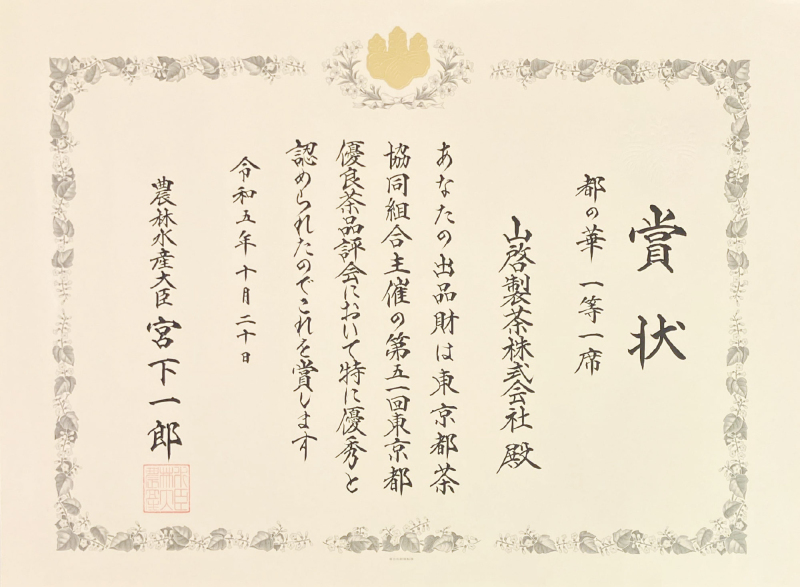 賞状
都の華 一等一席
山啓製茶株式会社 殿
あなたの出品財は東京都茶
協同組合主催の第五一回東京都
優良茶品評会において特に優秀と
認められたのでこれを賞します
令和五年十月二十日
農林水産大臣 宮下一郎